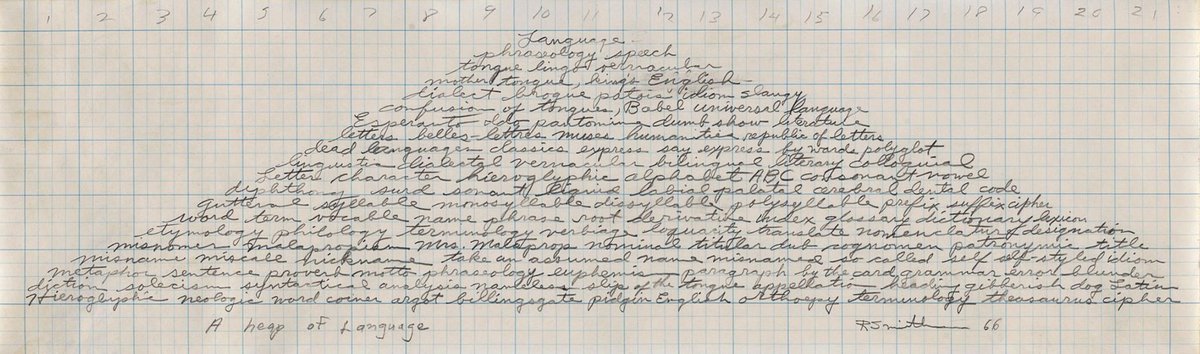 1 2 3 4 5 6 7 8 9 10 11 12 13 14 15 16 17 18 19 20 21
Language
phraseology speech
tongue lingo vernacular
mother tongue, king's English
dialect brogue patois idiom slangy
confusion of tongues, Babel universal language
Esperanto Ido pantomime dumb show literature
letters belles-lettres muses humanities republic of letters
dead languages classics express say express by words polyglot
linguistic dialectal vernacular bilingual literary colloquial
letter character hieroglyphic alphabet ABC consonant vowel
diphthong surd sonant liquid labial palatal cerebral dental code
guttural syllable monosyllable dissyllable polysyllable prefix suffix cipher
word term vocable name phrase root derivative index glossary dictionary lexicon
etymology philology terminology verbiage loquacity translate nomenclature designation
misnomer malapropism Mrs. Malaprop nominal titular dub cognomen patronymic title
misname miscall nickname take an assumed name misnamed so called self self-styled idiom
metaphor sentence proverb motto phraseology euphemism paragraph by the card grammar error blunder
diction solecism syntactical analysis nameless slip of the tongue appellation heading gibberish dog Latin
Hieroglyphic neologic word coiner argot billingsgate pidgin English orthoepy terminology theasaurus cipher
A heap of Language
R Smithson 66